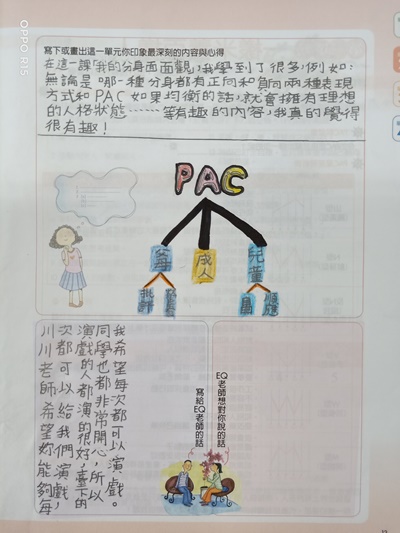 寫下或畫出這一單元你印象最深刻的內容與心得
在這一課「我的分身面面觀」,我學到了很多,例如:
無論是哪一種分身都有正向和負向兩種表現
方式和PAC如果均衡的話,就會擁有理想
的人格狀態……等有趣的內容,我真的覺得
很有趣!
PAC
父母
成人
兒童
批評
順應
EQ老師想對你說的話
寫給EQ老師的話
我希望每次都可以演戲。
同學也都非常開心,所以
演戲的人都演的很好,臺下的
次都可以給我們演戲,
川川老師希望妳能夠每
OPPO R15